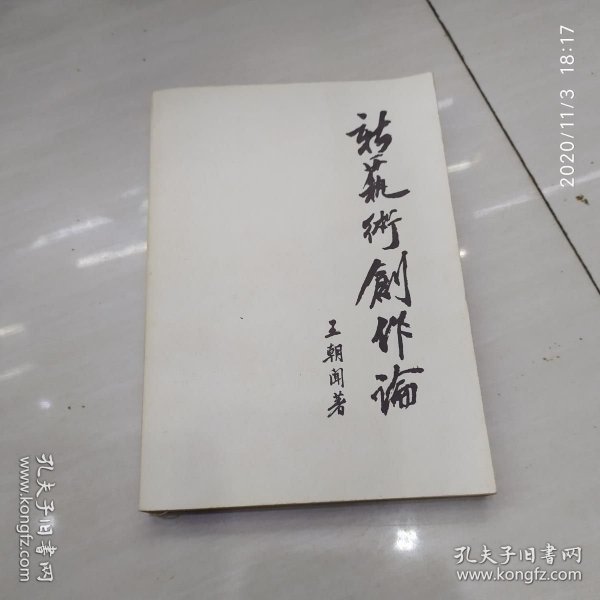 新藝術創作论
王朝闻著
2020/11/3 18:17
孔夫子旧书网
www.kongfz.com
孔夫子旧书网
www.kongfz.com